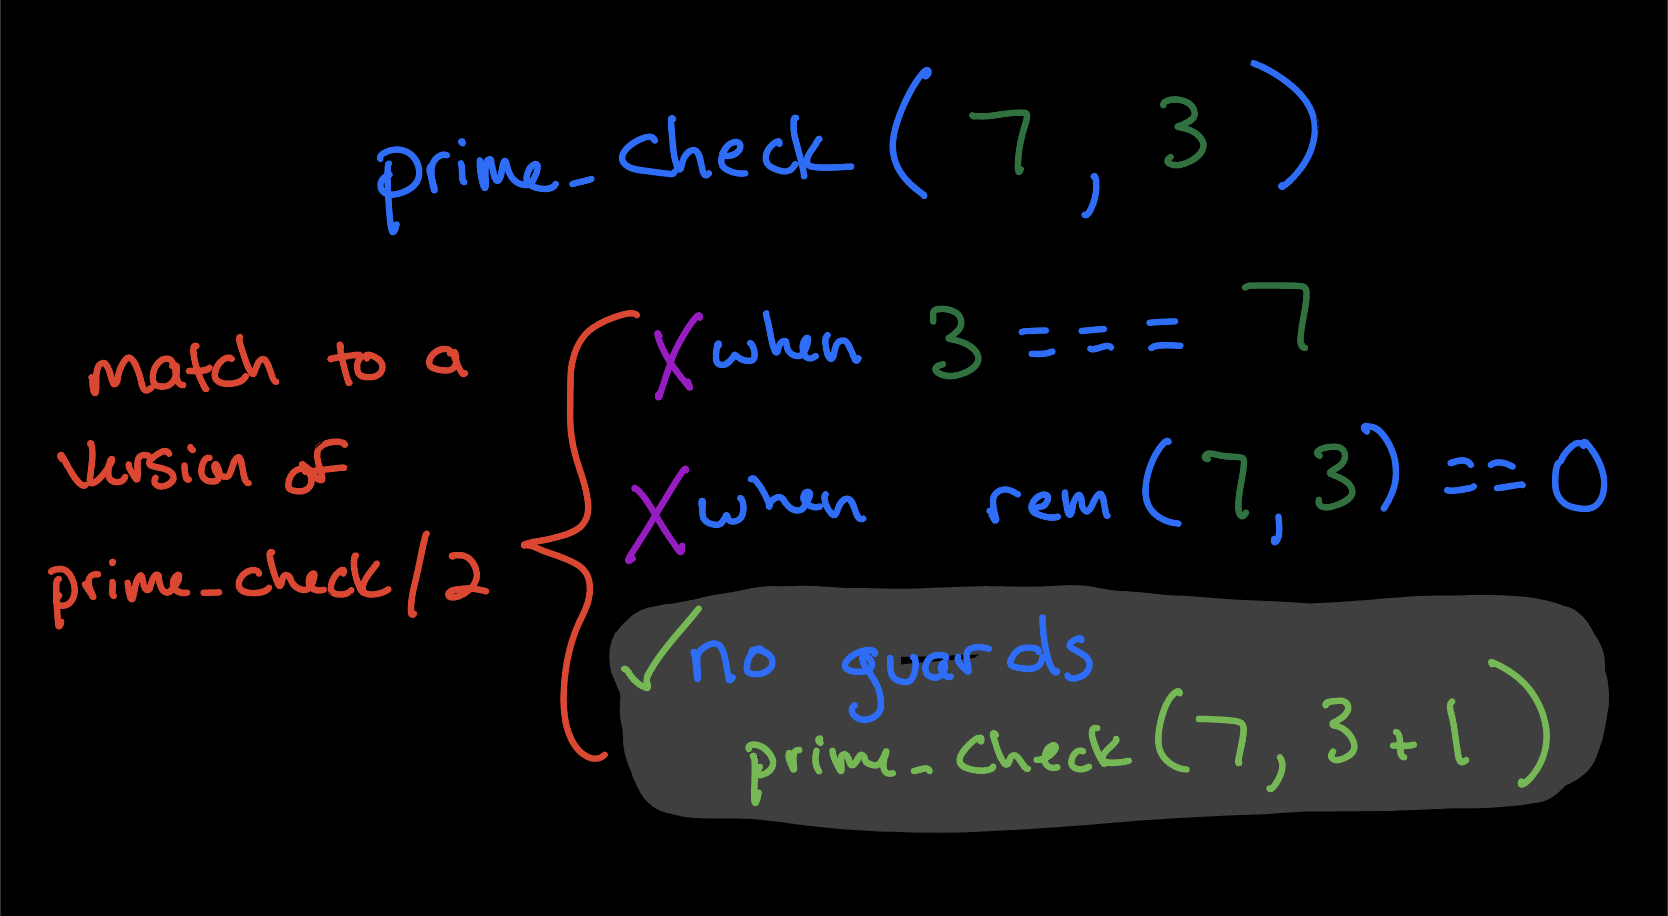 prime_check(7, 3)
match to a
version of
prime_check/2
X when 3 === 7
X when rem(7, 3) == 0
✓ no guards
prime_check(7, 3+1)